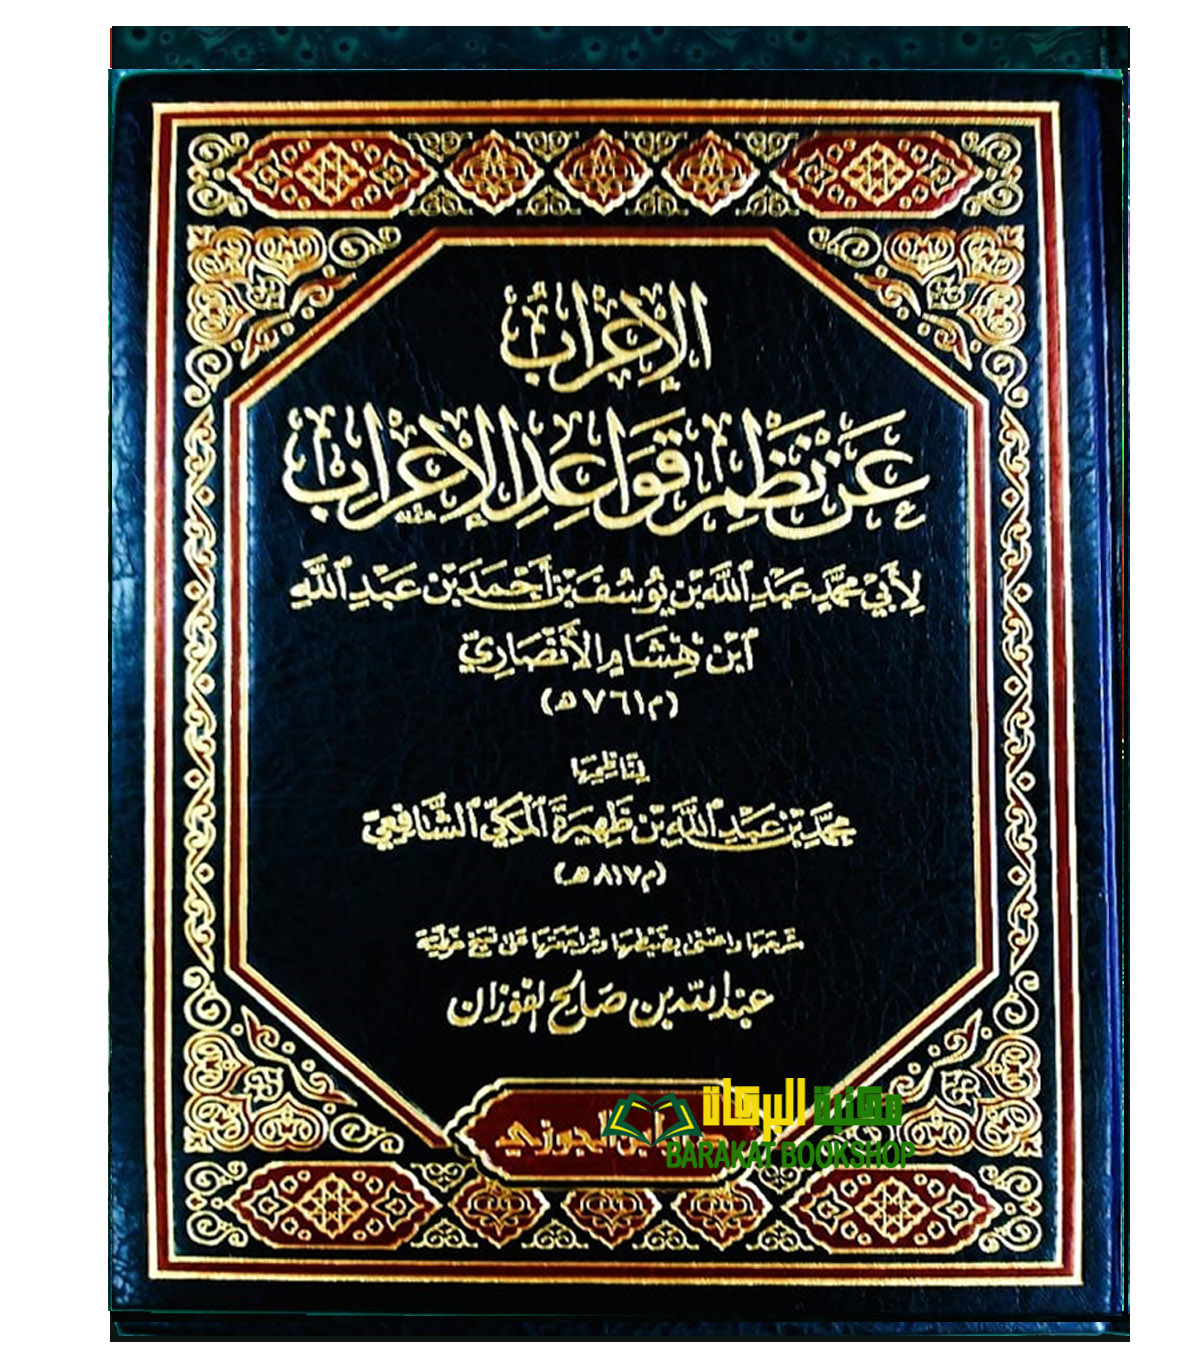 الإِعْرَابُ
عَنْ نَظْمِ قَوَاعِدِ الإِعْرَابِ
لِأَبِي مُحَمَّدٍ عَبْدِ اللَّهِ بْنِ يُوسُفَ بْنِ أَحْمَدَ بْنِ عَبْدِ اللَّهِ
ابْنِ هِشَامٍ الأَنْصَارِيِّ
(م٧٦١هـ)
لِنَاظِمِهَا
مُحَمَّدِ بْنِ عَبْدِ اللَّهِ بْنِ ظَهِيرَةَ الْمَكِّيِّ الشَّافِعِيِّ
(م٨١٧هـ)
شرحها واعتنى بضبطها ومراجعتها على نسخ خطية
عبد الله بن صالح الفوزان
ابن الجوزي
مكتبة البركات
BARAKAT BOOKSHOP